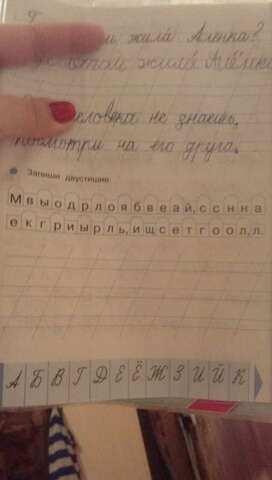 жила́ Аленка?
жила Алёнка
человека не знаешь,
посмотри на его друга.
Запиши двустишие.
М в ы о д р л о я б в е а й, с с н н а
е к г р и ы р л ь, и щ с е т г о о л л.
А Б В Г Д Е Ё Ж З И Й К